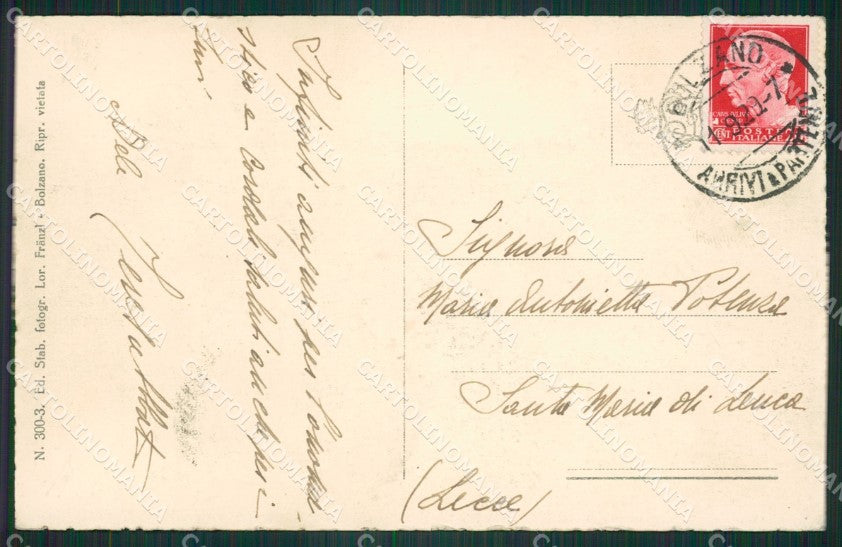 Infiniti auguri per l'onomastico e cordiali saluti ai
Adele
Signora
Maria Antonietta Potenza
Santa Maria di Leuca
(Lecce)
BOLZANO
ARRIVI E PARTENZE
POSTE
ITALIANE
N. 300-3. Ed. Stab. fotogr. Lor. Fränzl - Bolzano. Ripr. vietata
CARTOLINOMANIA